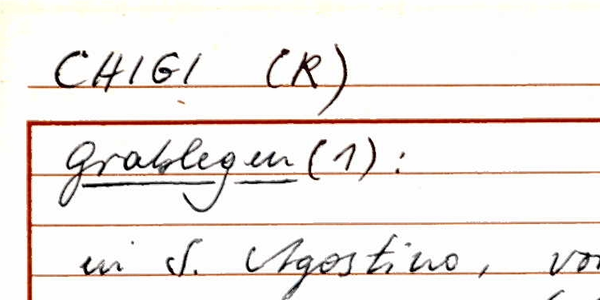 CHIGI (R)
Grablegen (1):
in S. Agostino,